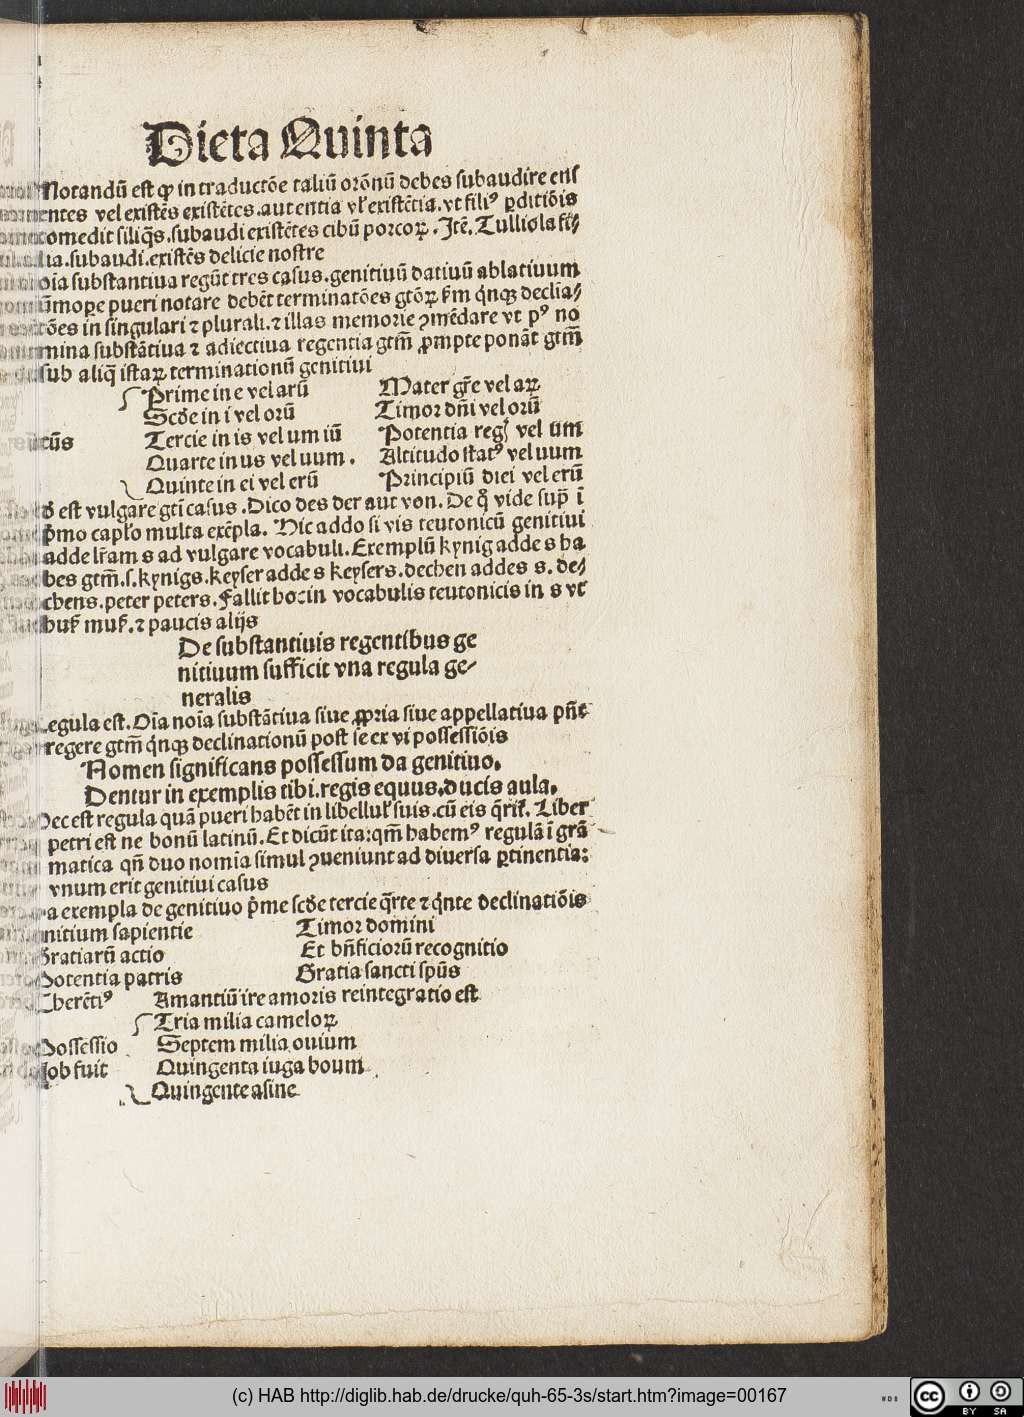 Dieta Quinta
Notandū est ꝙ in traductōe taliū orōnū debes subaudire ens
entes vel existēs existētes.aut entia vĺ existētia.vt filiꝰ ꝑditiōis
comedit siliq̄s.subaudi existētes cibū porcoꝝ. Jtē. Tulliola fi⸗
lia.subaudi.existēs delicie nostre
oīa substantiua regūt tres casus.genitiuū datiuū ablatiuum
ūmoꝑe pueri notare debēt terminatōes gtōꝝ ẜm q̇nqꝫ declīa⸗
ōes in singulari ⁊ plurali.⁊ illas memorie ꝯmēdare vt pꝰ no
mina substātiua ⁊ adiectiua regentia gtm̄ ꝓmpte ponāt gtm̄
sub aliq̄ istaꝝ terminationū genitiui
Prime in e vel arū Mater gr̄e vel aꝝ
Scd̄e in i vel orū Timor dn̄i vel orū
Tercie in is vel um iū Potentia reg vel um
Quarte in us vel uum. Altitudo statꝰ vel uum
Quinte in ei vel erū Principiū diei vel erū
est vulgare gti casus.Dico des der aut von.De q̊ vide sup̄ ī
p̄mo capło multa exēpla. Hic addo si vis teutonicū genitiui
adde lr̄am s ad vulgare vocabuli.Exemplū kynig adde s ha
bes gtm̄.s.kynigs.keyser adde s keysers.dechen addes s. de⸗
chens.peter peters.Fallit hoc in vocabulis teutonicis in s vt
huß muß.⁊ paucis alijs
De substantiuis regentibus ge
nitiuum sufficit vna regula ge⸗
neralis
egula est.Oīa noīa substātiua siue ꝓpria siue appellatiua pn̄t
regere gtm̄ q̇nqꝫ declinationū post se ex vi possessiōis
Nomen significans possessum da genitiuo.
Dentur in exemplis tibi.regis equus.ducis aula.
Hec est regula quā pueri habēt in libelluĺ suis.cū eis q̄riť. Liber
petri est ne bonū latinū.Et dicūt ita:qm̄ habemꝰ regulā ī grā
matica qn̄ duo nomīa simul ꝯueniunt ad diuersa ꝑtinentia:
vnum erit genitiui casus
a exempla de genitiuo p̄me scd̄e tercie q̄rte ⁊ q̇nte declinatiōis
nitium sapientie Timor domini
Gratiarū actio Et bn̄ficiorū recognitio
Potentia patris Gratia sancti spūs
Therētiꝰ Amantiū ire amoris reintegratio est
Tria milia cameloꝝ
Possessio Septem milia ouium
Job fuit Quingenta iuga boum
Quingente asine
(c) HAB http://diglib.hab.de/drucke/quh-65-3s/start.htm?image=00167
WDB
cc BY SA